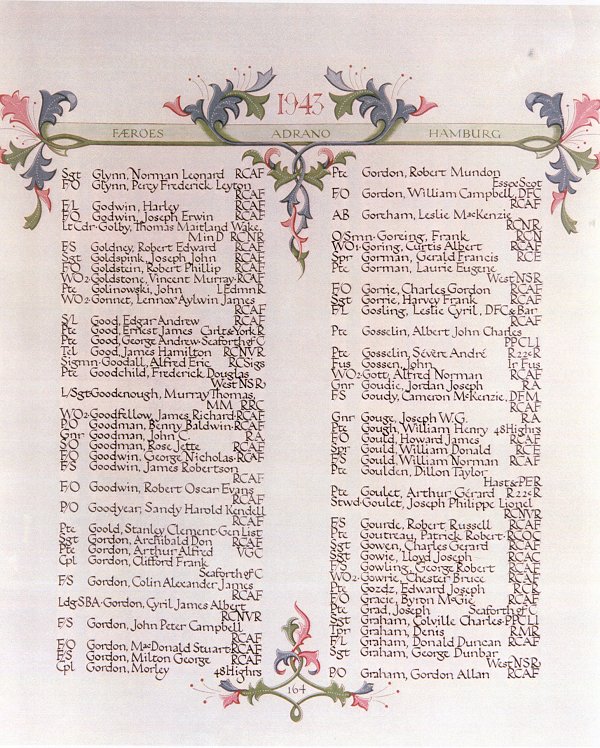 1943
FÆROES ADRANO HAMBURG
Sgt Glynn, Norman Leonard RCAF
F/O Glynn, Percy Frederick Leyton
RCAF
F/L Godwin, Harley RCAF
F/O Godwin, Joseph Erwin RCAF
Lt Cdr·Golby, Thomas Maitland Wake,
Min D RCNR
F/S Goldney, Robert Edward RCAF
Sgt Goldspink, Joseph John RCAF
F/O Goldstein, Robert Phillip RCAF
WO2·Goldstone, Vincent Murray·RCAF
Pte Golinowski, John LEdmnR
WO2·Gonnet, Lennox Aylwin James
RCAF
S/L Good, Edgar Andrew RCAF
Pte Good, Ernest James Carl&YorkR
Pte Good, George Andrew·SeaforthofC
Tel Good, James Hamilton RCNVR
Sigmn·Goodall, Alfred Eric RCSigs
Pte Goodchild, Frederick Douglas
WestNSR
L/Sgt Goodenough, Murray Thomas,
MM RRC
WO2·Goodfellow, James Richard·RCAF
P/O Goodman, Benny Baldwin·RCAF
Gnr Goodman, John C. RA
S/O Goodman, Rose Jette RCAF
F/O Goodwin, George Nicholas·RCAF
F/S Goodwin, James Robertson
RCAF
F/O Goodwin, Robert Oscar Evans
RCAF
P/O Goodyear, Sandy Harold Kendell
RCAF
Pte Goold, Stanley Clement·Gen List
Sgt Gordon, Archibald Don RCAF
Pte Gordon, Arthur Alfred VGC
Cpl Gordon, Clifford Frank
SeaforthofC
F/S Gordon, Colin Alexander James
RCAF
Ldg SBA·Gordon, Cyril James Albert
RCNVR
F/S Gordon, John Peter Campbell
RCAF
F/O Gordon, MacDonald Stuart RCAF
F/S Gordon, Milton George RCAF
Cpl Gordon, Morley 48Highrs
Pte Gordon, Robert Mundon
EssexScot
F/O Gordon, William Campbell, DFC
RCAF
AB Gorham, Leslie MacKenzie
RCNR
OSmn·Goreing, Frank RCN
WO1·Goring, Curtis Albert RCAF
Spr Gorman, Gerald Francis RCE
Pte Gorman, Laurie Eugene
WestNSR
F/O Gorrie, Charles Gordon RCAF
Sgt Gorrie, Harvey Frank RCAF
F/L Gosling, Leslie Cyril, DFC&Bar
RCAF
Pte Gosselin, Albert John Charles
PPCLI
Pte Gosselin, Sévère André R22eR
Fus Gossen, John Ir Fus
WO2·Gott, Alfred Norman RCAF
Gnr Goudie, Jordan Joseph RA
F/S Goudy, Cameron McKenzie, DFM
RCAF
Gnr Gouge, Joseph W.G. RA
Pte Gough, William Henry 48Highrs
F/O Gould, Howard James RCAF
Spr Gould, William Donald RCE
F/S Gould, William Norman RCAF
Pte Goulden, Dillon Taylor
Hast&PER
Pte Goulet, Arthur Gérard R22eR
Stwd·Goulet, Joseph Philippe Lionel
RCNVR
F/S Gourde, Robert Russell RCAF
Pte Goutreau, Patrick Robert·RCOC
Sgt Gowen, Charles Gerard RCAF
Sgt Gowie, Lloyd Joseph RCAC
F/S Gowling, George Robert RCAF
WO2·Gowrie, Chester Bruce RCAF
Pte Gozdz, Edward Joseph RCR
F/O Gracie, Byron McGie RCAF
Pte Grad, Joseph SeaforthofC
Sgt Graham, Colville Charles·PPCLI
Tpr Graham, Denis RMR
F/L Graham, Donald Duncan RCAF
Sgt Graham, George Dunbar
WestNSR
P/O Graham, Gordon Allan RCAF
164